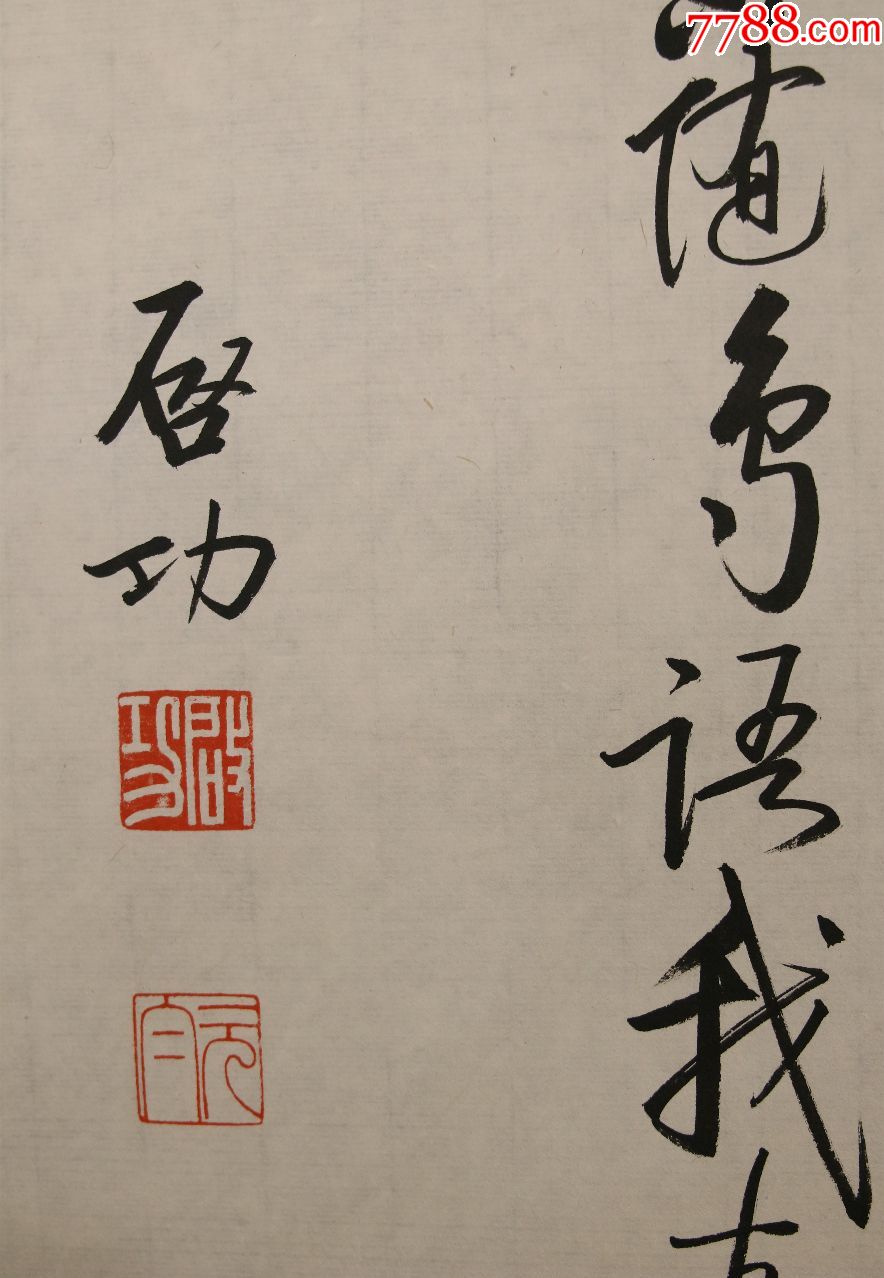 7788.com
随鸟语我
啓功
啟功
元白